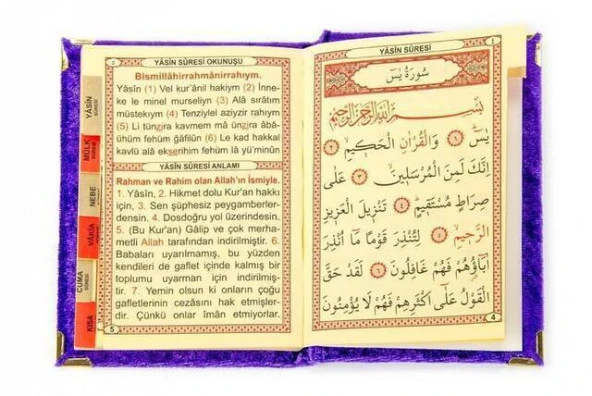 YÂSİN SÛRESİ OKUNUŞU
Bismillâhirrahmânirrahıym.
Yâsîn (1) Vel kur'ânil hakiym (2) İnne-
ke le minel murseliyn (3) Alâ sırâtım
müstekıym (4) Tenziylel aziyzir rahıym
(5) Li tünzira kavmem mâ ünzira âbâ-
ühüm fehüm ğâfilûn (6) Le kad hakkal
kavlü alâ ekserihim fehüm lâ yü'minûn
YÂSİN SÛRESİ ANLAMI
Rahman ve Rahim olan Allah'ın İsmiyle.
1. Yâsîn, 2. Hikmet dolu Kur'an hakkı
için, 3. Sen şüphesiz peygamberler-
densin. 4. Dosdoğru yol üzerindesin.
5. (Bu Kur'an) Gâlip ve çok merha-
metli Allah tarafından indirilmiştir. 6.
Babaları uyarılmamış, bu yüzden
kendileri de gaflet içinde kalmış bir
toplumu uyarman için indirilmiş-
tir. 7. Yemin olsun ki onların çoğu
gafletlerinin cezasını hak etmişler-
dir. Çünkü onlar îman etmiyorlar.
5
YASİN
SÛRESİ
MÜLK
SÛRESİ
NEBE
VÂKIA
CUMA
SÛRESİ
KISA
YÂSİN SÛRESİ
سُورَةُ يٰسٓ
بِسْمِ اللّٰهِ الرَّحْمٰنِ الرَّحِيمِ
يٰسٓ ﴿١﴾ وَالْقُرْاٰنِ الْحَكٖيمِ ﴿٢﴾
اِنَّكَ لَمِنَ الْمُرْسَلٖينَ ﴿٣﴾ عَلٰى
صِرَاطٍ مُسْتَقٖيمٍ ﴿٤﴾ تَنْزٖيلَ الْعَزٖيزِ
الرَّحٖيمِ ﴿٥﴾ لِتُنْذِرَ قَوْمًا مَٓا اُنْذِرَ
اٰبَٓاؤُ۬هُمْ فَهُمْ غَافِلُونَ ﴿٦﴾ لَقَدْ حَقَّ
الْقَوْلُ عَلٰٓى اَكْثَرِهِمْ فَهُمْ لَا يُؤْمِنُونَ
4